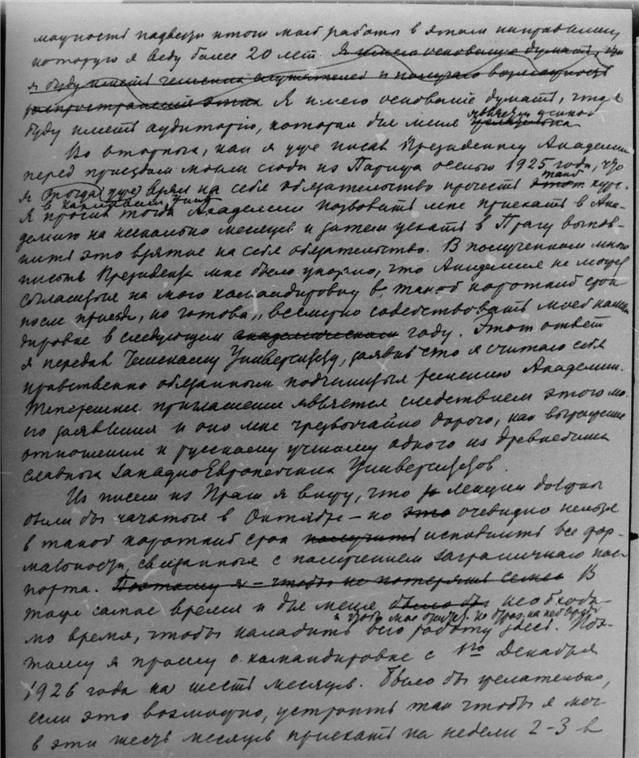 можность подвести итоги моей работы в этом направлении
которую я веду более 20 лет Я имею основание думать, что
я буду иметь чешских слушателей и получаю возможность
распространить этих Я имею основание думать, что я
буду иметь аудиторию, которая для меня явится ценной
Во вторых, как я уже писал Президенту Академии
перед приездом моим сюда из Парижа осенью 1925 года, что
я тогда (уже) взял на себя обязательство прочесть этот такой курс.
в Карловом Унив
Я просил тогда Академию позволить мне приехать в Ака-
демию на несколько месяцев и затем уехать в Прагу выпол-
нить это взятое на себя обязательство. В полученном мною
письме Президента мне было указано, что Академия не может
согласиться на мою командировку в такой короткий срок
после приезда, но готова "всемерно содействовать моей коман-
дировке в следующем академическом году. Этот ответ
я передал Чешскому Университету, заявив что я считаю себя
нравственно обязанным подчиниться решению Академии.
Теперешнее приглашение является следствием этого мо-
его заявления и оно мне чрезвычайно дорого, как выражение
отношения к русскому ученому одного из древнейших
славных западно Европейских Университетов.
Из писем из Праги я вижу, что лекции должны
были бы начаться в Октябре – но это очевидно нельзя
в такой короткий срок получить исполнить все фор-
мальности, связанные с получением заграничного пас-
порта. Поэтому я – чтобы не потерять семес В
тоже самое время и для меня было бы необходи-
мо время, чтобы наладить всю работу здесь. Поэ-
тому я прошу о командировке с 1го Декабря
1926 года на шесть месяцев. Было бы желательно,
если это возможно, устроить так чтобы я мог
в эти шесть месяцев приехать на недели 2–3 в